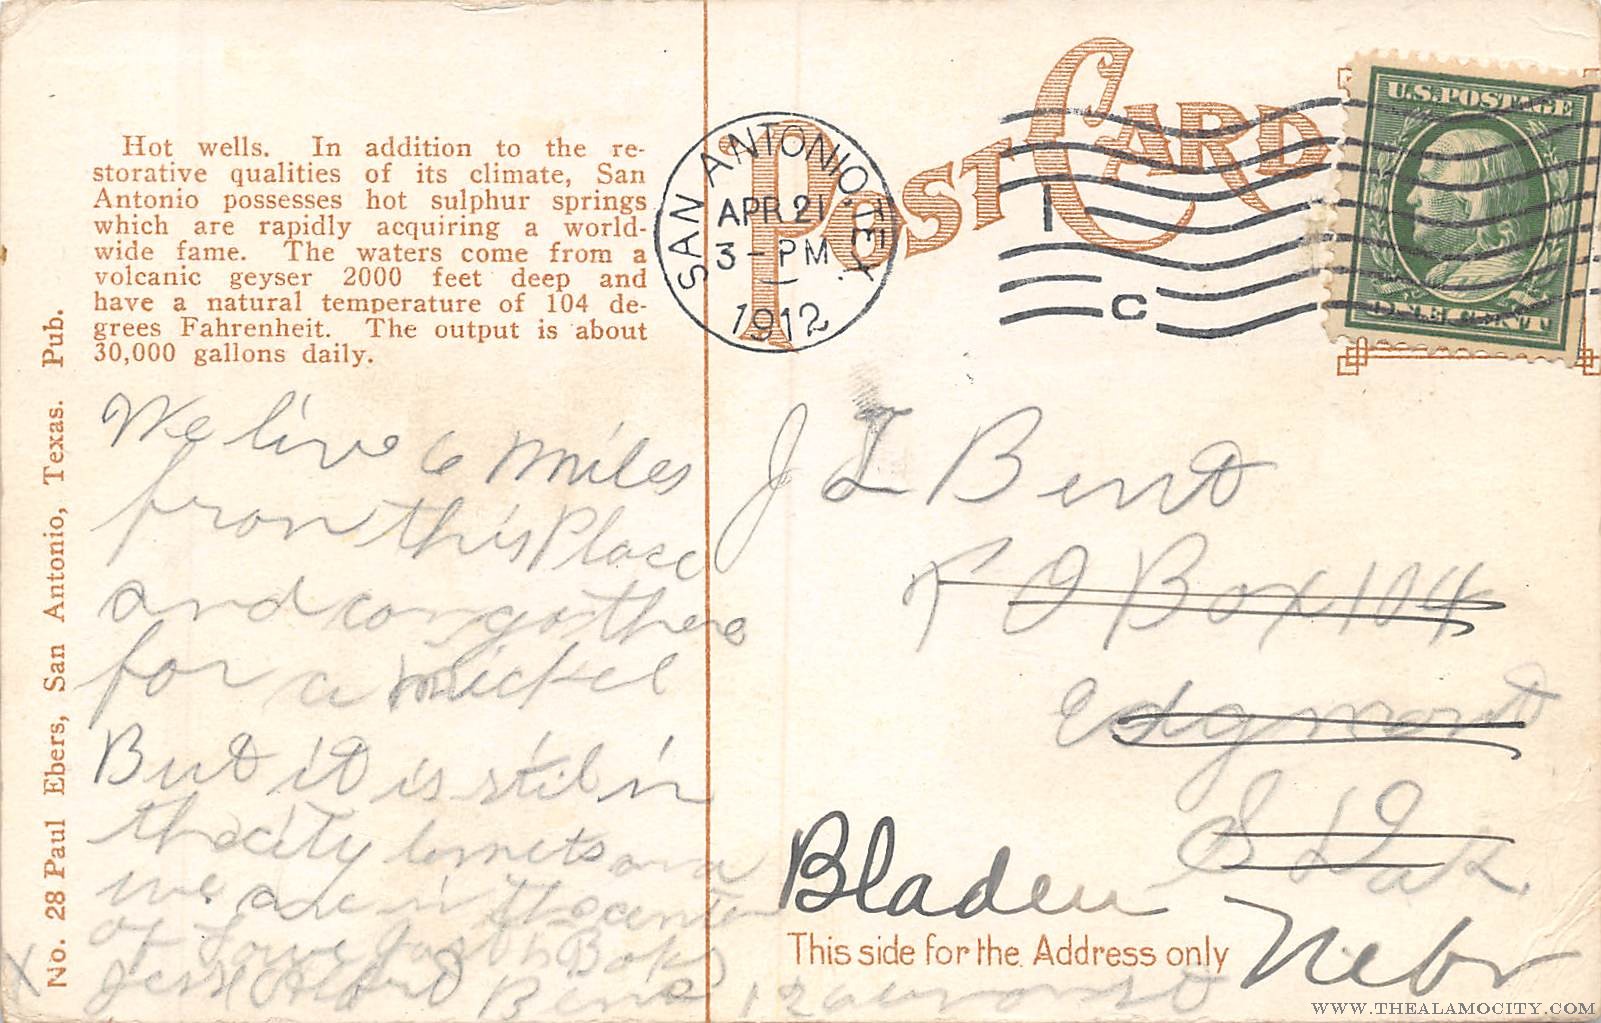 Hot wells. In addition to the re-
storative qualities of its climate, San
Antonio possesses hot sulphur springs
which are rapidly acquiring a world-
wide fame. The waters come from a
volcanic geyser 2000 feet deep and
have a natural temperature of 104 de-
grees Fahrenheit. The output is about
30,000 gallons daily.
No. 28 Paul Ebers, San Antonio, Texas. Pub.
We live 6 miles
from this Place
and can go there
for a nickel
But it is stil in
the city
we are in the center
of
POST CARD
SAN ANTONIO, TEX.
APR 21
3 - PM
1912
1
C
U.S. POSTAGE
J L Bent
P O Box 104
Edgmont
S Dak.
Bladen
Nebr
This side for the Address only
WWW.THEALAMOCITY.COM